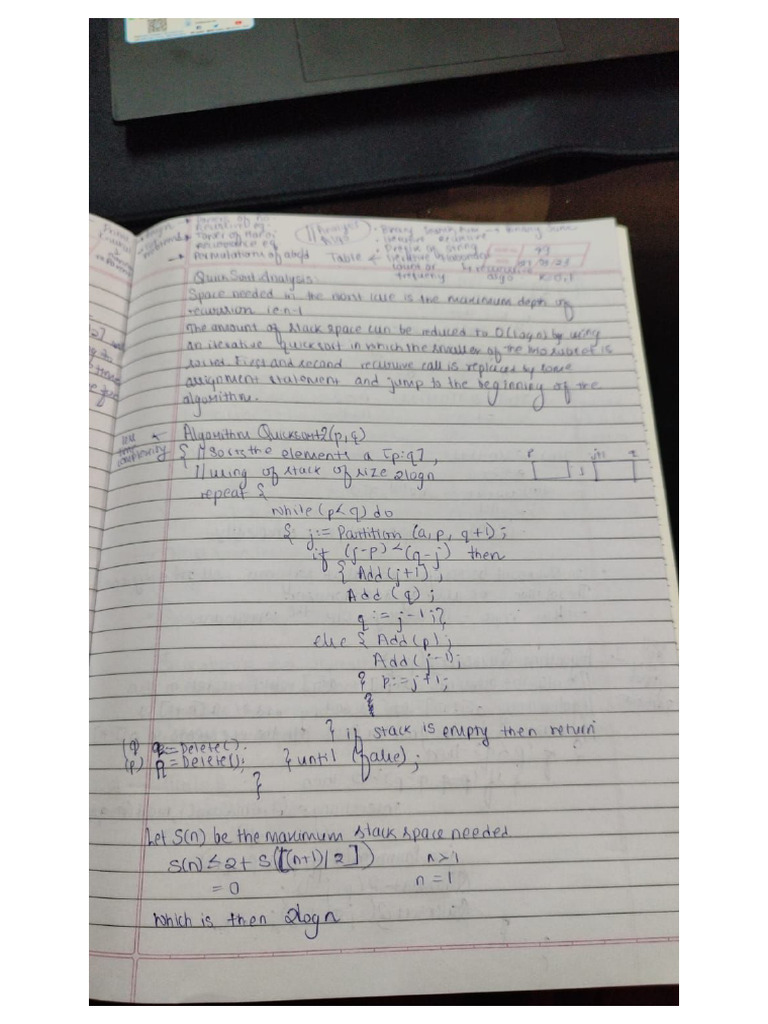 Binary Search tree → Binary Search
Iterative
Prefix of string
Table
frequency
algo
QuickSort Analysis:
Space needed in the worst case is the maximum depth of
recursion i.e n-1
The amount of stack space can be reduced to O(logn) by using
an iterative quicksort in which the smaller of the two subset is
sorted first and second recursive call is replaced by some
assignment statement and jump to the beginning of the
algorithm.
complexity ← Algorithm Quicksort2(p, q)
{ // Sorts the elements a [p:q],
// using of stack of size 2logn
p j j+1 q
repeat {
while (p<q) do
{ j:= Partition (a, p, q+1);
if (j-p) < (q-j) then
{ Add(j+1);
Add (q);
q:= j-1;}
else { Add(p);
Add (j-1);
} p:=j+1;
}
} if stack is empty then return
(q) q:=Delete();
(p) p:=Delete(); } until (false);
}
Let S(n) be the maximum stack space needed
S(n) ≤ 2+ S([(n+1)/2]) n>1
= 0 n=1
which is then 2logn